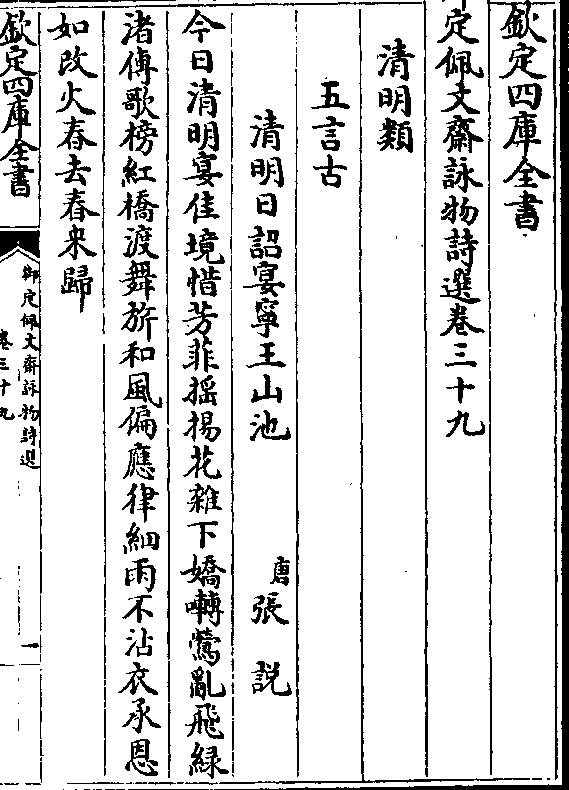 欽定四庫全書
定佩文齋詠物詩選卷三十九
清明類
五言古
清明日詔宴寧王山池 唐張說
今日清明宴佳境惜芳菲摇揚花雜下嬌囀鶯亂飛緑
渚傳歌榜紅橋渡舞旂和風偏應律細雨不沾衣承恩
如改火春去春來歸
欽定四庫全書
御定佩文齋詠物詩選
卷三十九
一